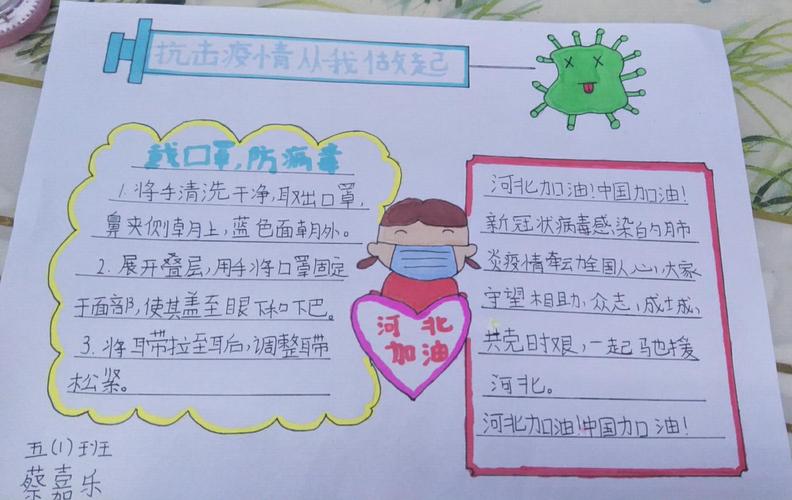 抗击疫情从我做起
戴口罩,防病毒
1. 将手清洗干净,取出口罩,
鼻夹侧朝上,蓝色面朝外。
2. 展开叠层,用手将口罩固定
于面部,使其盖至眼下和下巴。
3. 将耳带拉至耳后,调整耳带
松紧。
河北
加油
河北加油!中国加油!
新冠状病毒感染的肺
炎疫情牵动全国人心,大家
守望相助,众志成城,
共克时艰,一起驰援
河北。
河北加油!中国加油!
五(1)班
蔡嘉乐